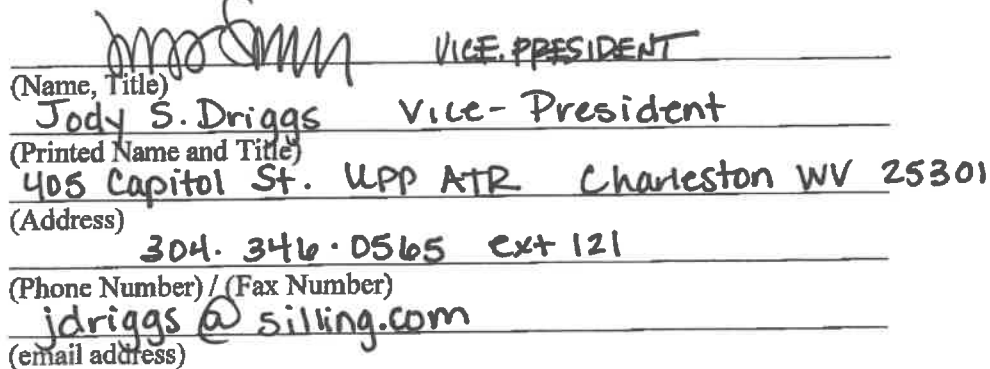 VICE. PRESIDENT
(Name, Title)
Jody S. Driggs Vice-President
(Printed Name and Title)
405 Capitol St. UPP ATR Charleston WV 25301
(Address)
304. 346. 0565 ext 121
(Phone Number) / (Fax Number)
jdriggs @ silling.com
(email address)